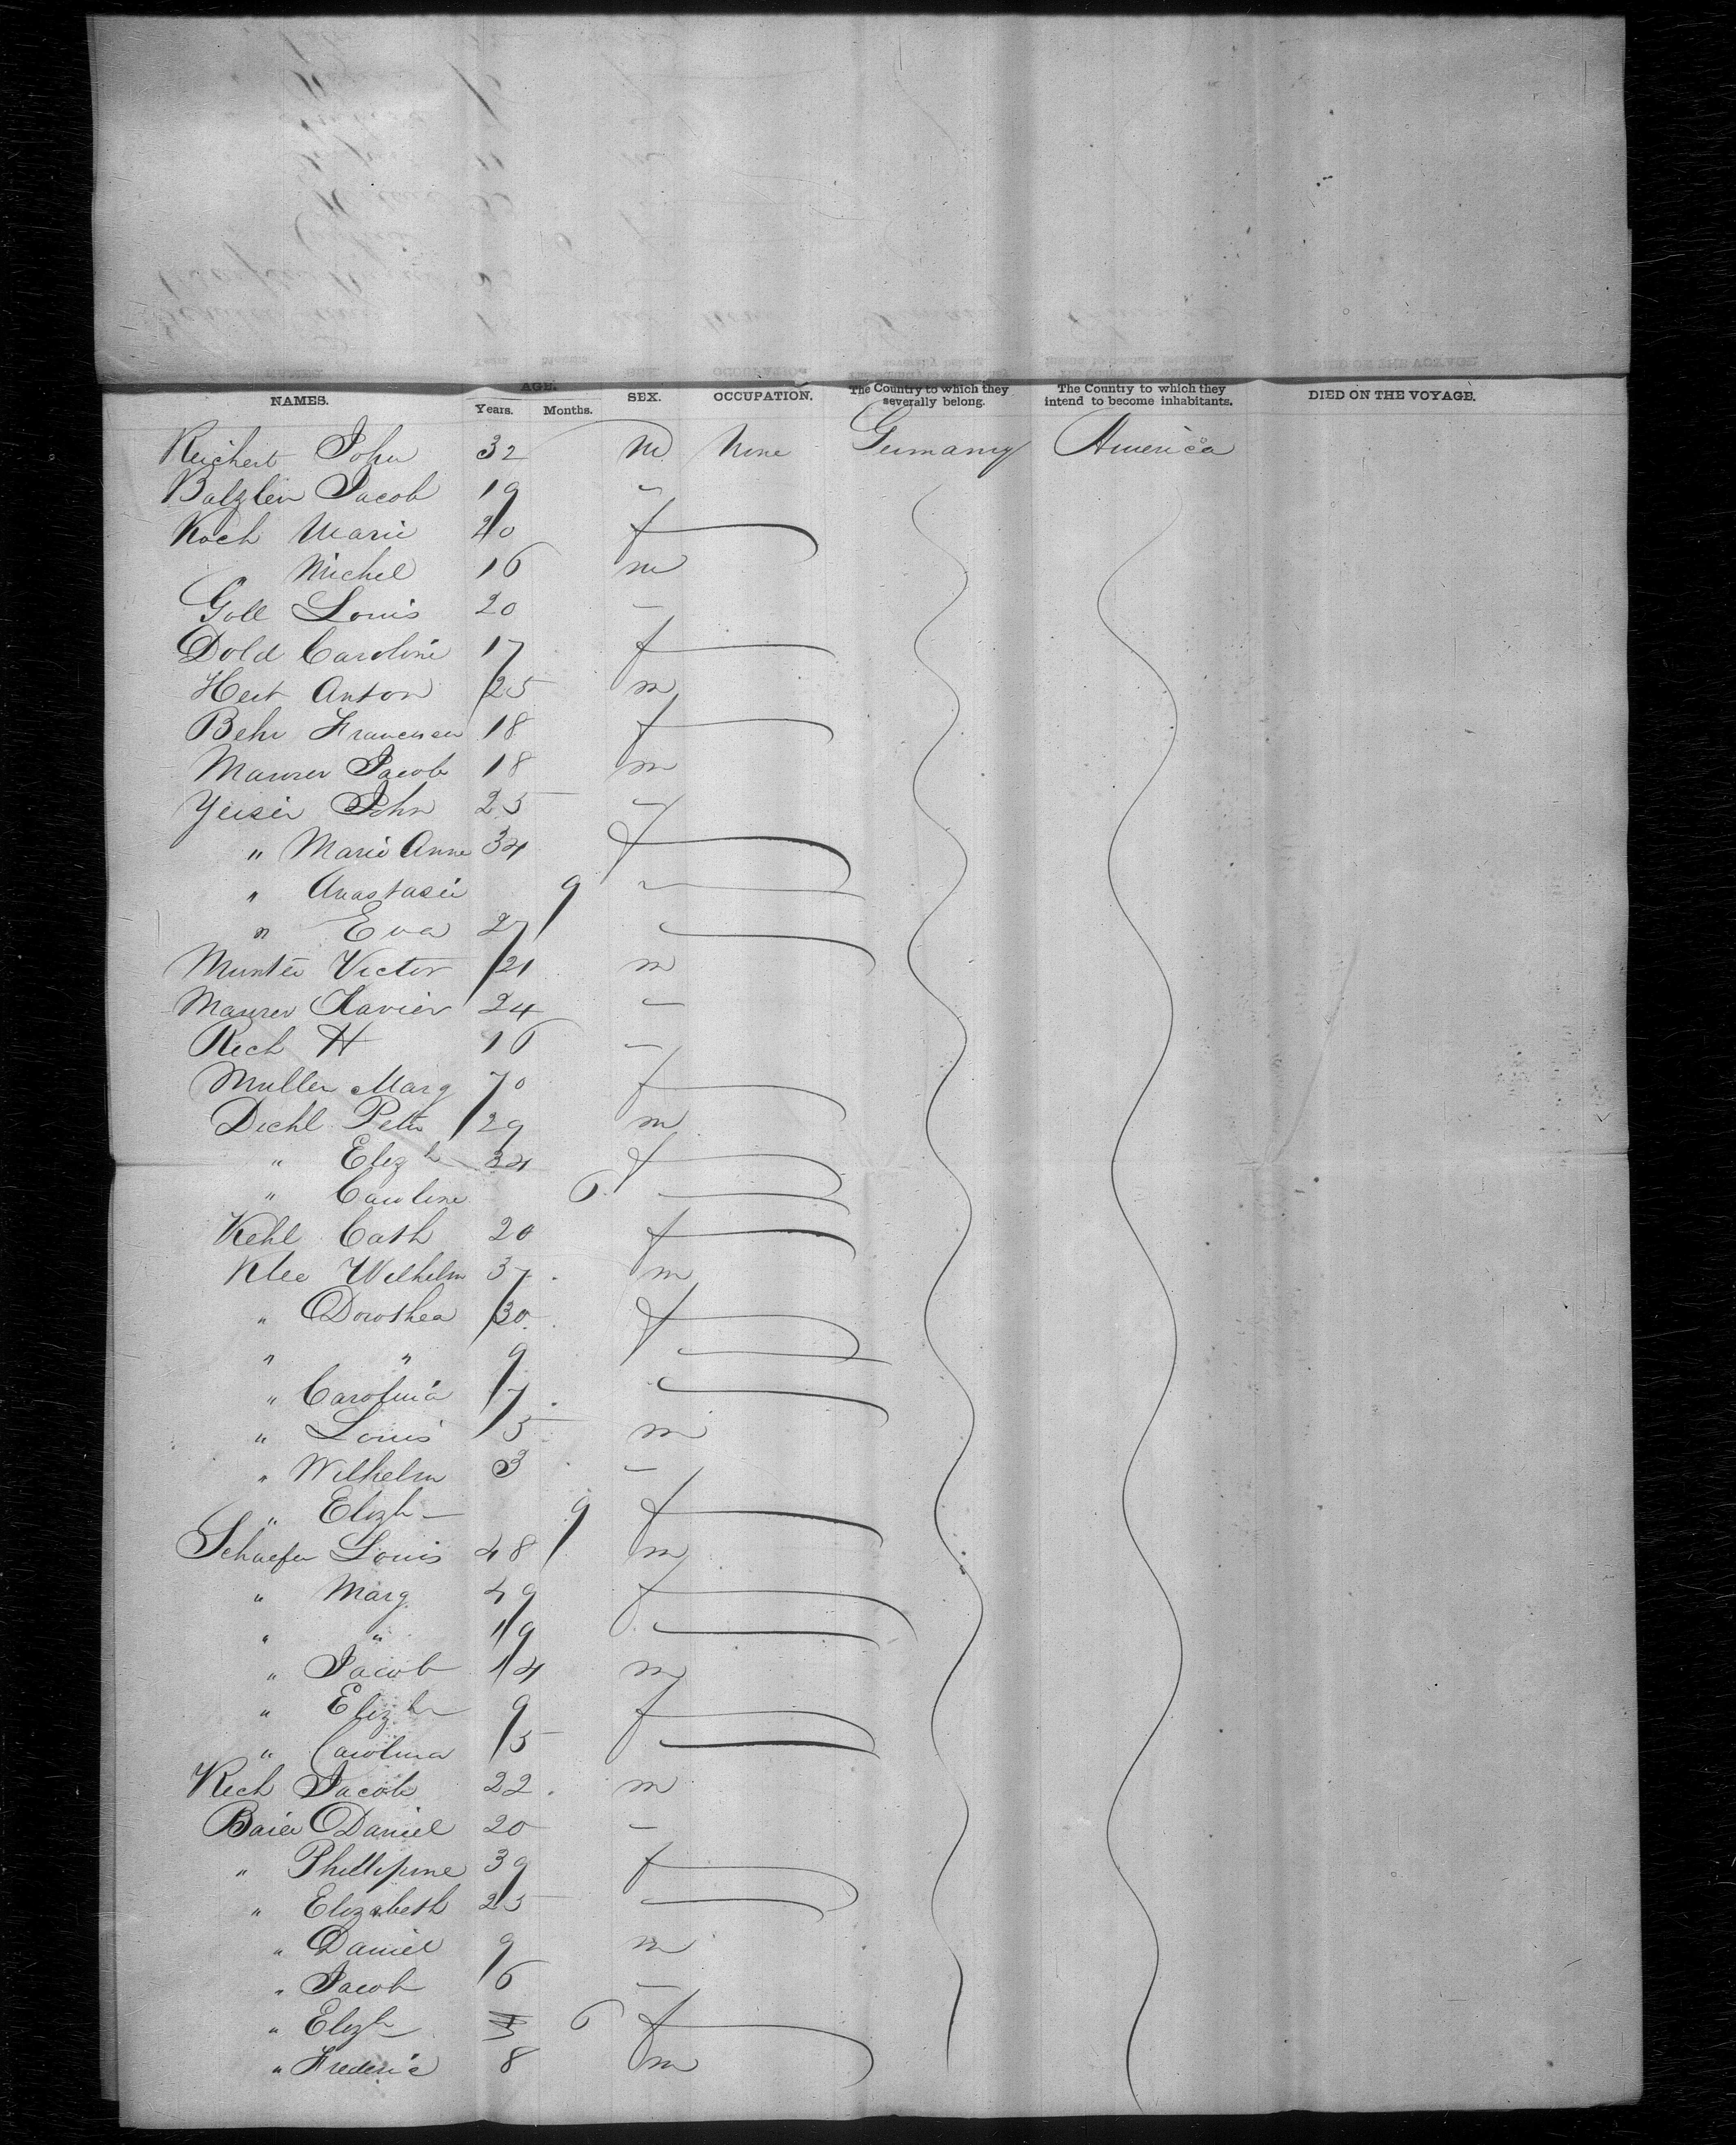 NAMES. AGE. SEX. OCCUPATION. The Country to which they severally belong. The Country to which they intend to become inhabitants. DIED ON THE VOYAGE.
Years. Months.
Reichert John 32 m None Germany America
Balzlen Jacob 19 -
Koch Marie 20 f
Michel 16 m
Goll Louis 20 -
Dold Caroline 17 f
Anton 25 m
Behr 18 f
Maurer Jacob 18 m
Yeisir John 25 -
" Marie Anne 34 f
" Anastasie 9 "
" Eva 27
Victor 21 m
Maurer Xavier 24 -
Rech H 16 -
Muller Marg 70 f
Diehl Peter 29 m
" Elizh 34 f
" Caroline 6
Kehl Cath 20 f
Klee Wilhelm 37 m
" Dorothea 30 f
" " 9
" Carolina 7
" Louis 5 m
" Wilhelm 3 -
" Elizh 9 f
Schaefer Louis 48 m
" Marg 49 f
" " 19
" Jacob 14 m
" Elizh 9 f
" Carolina 5
Rech Jacob 22 m
Baier Daniel 20 -
" Phillipine 39 f
" Elizabeth 25
" Daniel 9 m
" Jacob 6 -
" Elizh 6 f
" Frederic 8 m